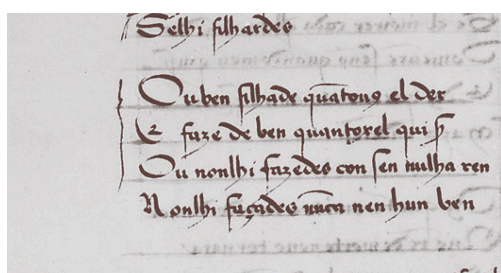 Selhi filhardes
Ou ben filhade quãtouꝯ el der
E faze de ben quantorel qui
Ou nonlhi fazedes con sen nulha ren
Nonlhi façades nũca nen hun ben